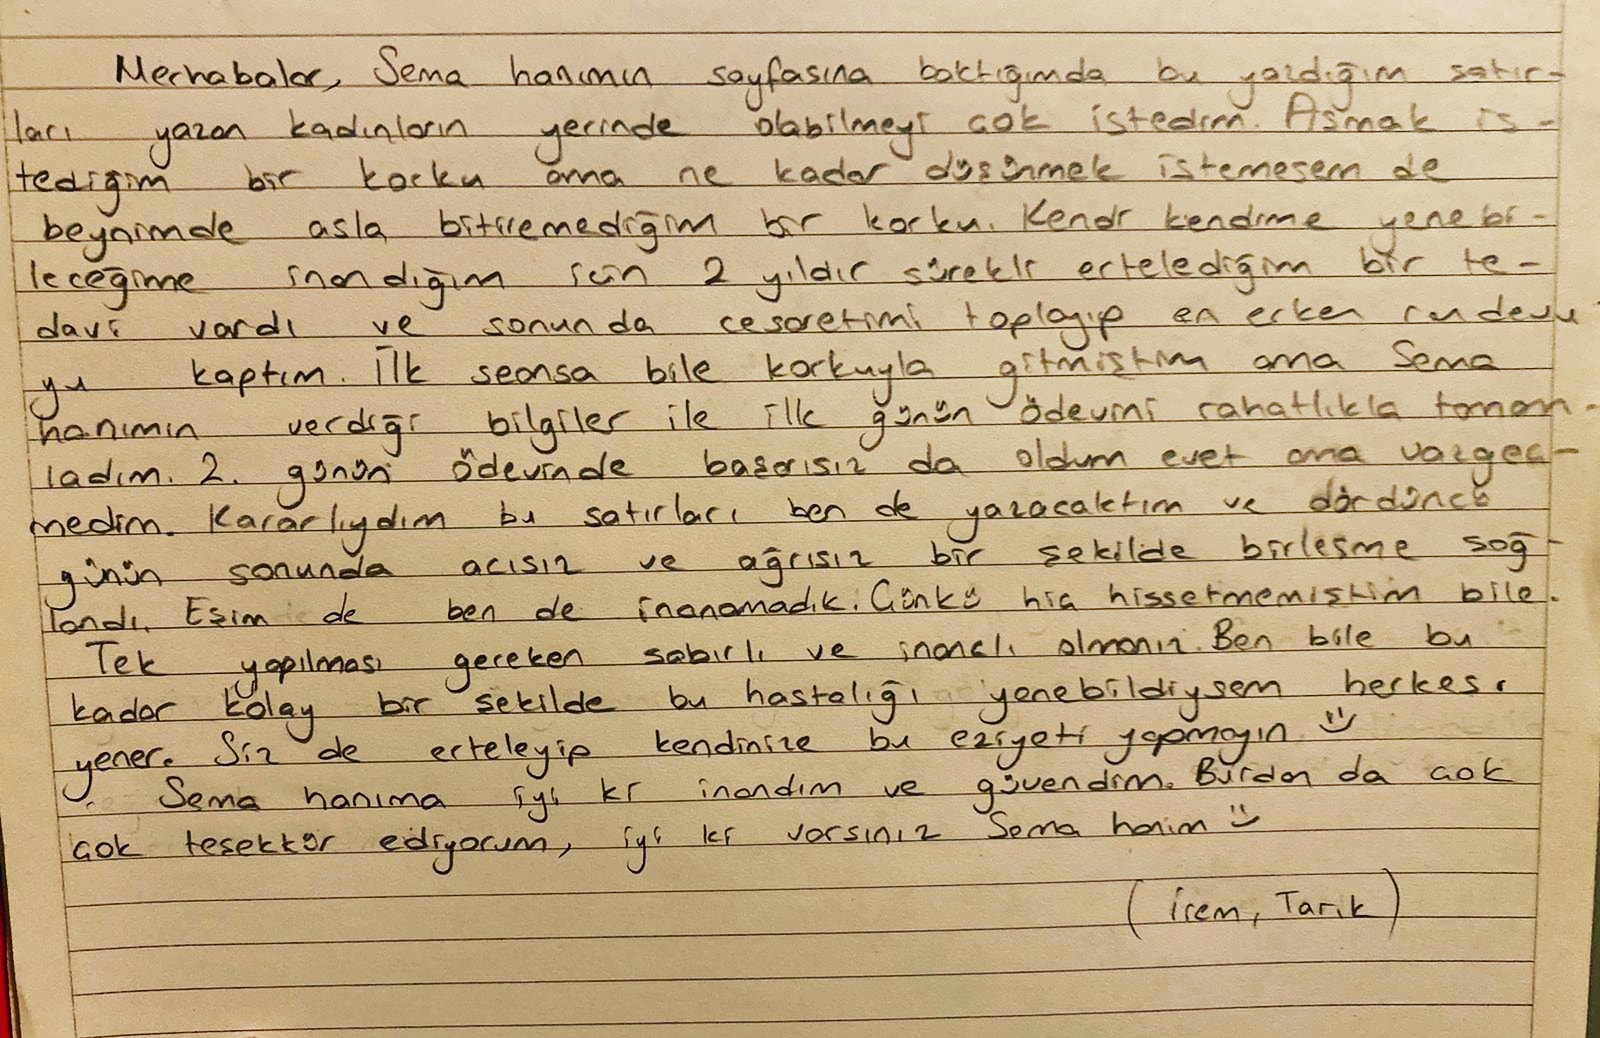 Merhabalar, Sema hanımın sayfasına baktığımda bu yazdığım satır-
ları yazan kadınların yerinde olabilmeyi çok istedim. Aşmak is-
tediğim bir korku ama ne kadar düşünmek istemesem de
beynimde asla bitiremediğim bir korku. Kendi kendime yenebi-
leceğime inandığım için 2 yıldır sürekli ertelediğim bir te-
davi vardı ve sonunda cesaretimi toplayıp en erken randevu
yu kaptım. İlk seansa bile korkuyla gitmiştim ama Sema
hanımın verdiği bilgiler ile ilk günün ödevini rahatlıkla tamam-
ladım. 2. günün ödevinde başarısız da oldum evet ama vazgeç-
medim. Kararlıydım bu satırları ben de yazacaktım ve dördüncü
günün sonunda acısız ve ağrısız bir şekilde birleşme sağ-
landı. Eşim de ben de inanamadık. Çünkü hiç hissetmemiştim bile.
Tek yapılması gereken sabırlı ve inançlı olmanız. Ben bile bu
kadar kolay bir şekilde bu hastalığı yenebildiysem herkes.
yener. Siz de erteleyip kendinize bu eziyeti yapmayın :)
Sema hanıma iyi ki inandım ve güvendim. Burdan da çok
çok teşekkür ediyorum, iyi ki varsınız Sema hanım :)
(İrem, Tarık)